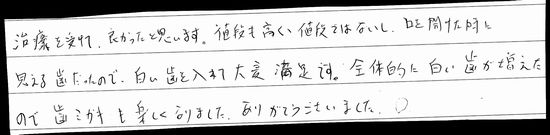 治療を受けて、良かったと思います。値段も高い値段ではないし、口を開けた時に
見える歯だったので、白い歯を入れて大変満足です。全体的に白い歯が増えた
ので歯ミガキも楽しくなりました。ありがとうございました。